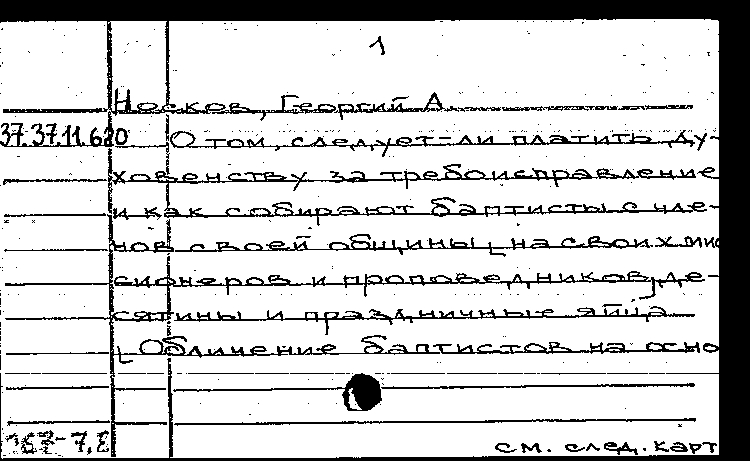 1
Носков, Георгий А.
37.37.11.620 О том, следует-ли платить ду-
ховенству за требоисправление
и как собирают баптисты с чле-
нов своей общины [на своих мис
сионеров и проповедников] де-
сятины и праздничные яйца
[Обличение баптистов на осно
см. след. карт